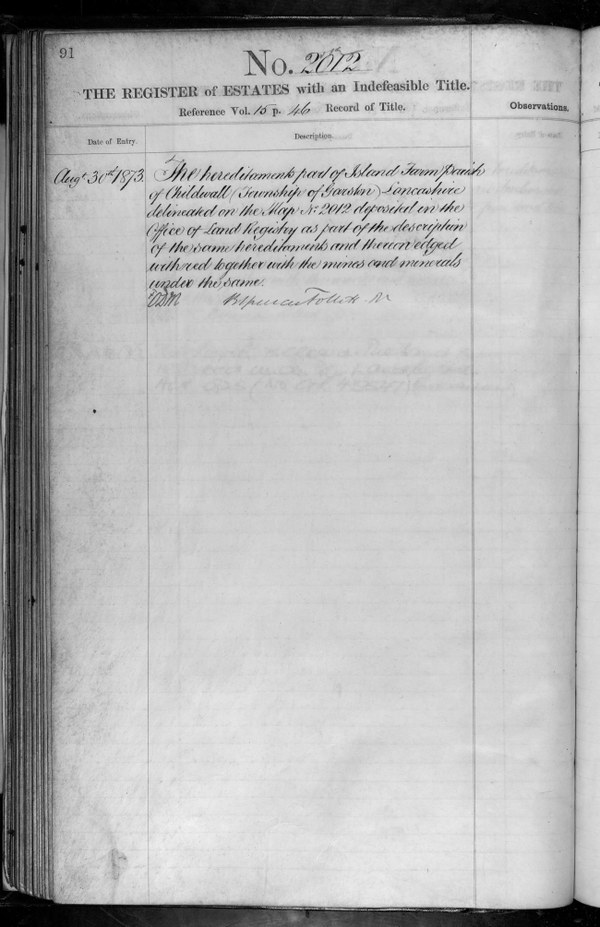 91
No. 2012
THE REGISTER of ESTATES with an Indefeasible Title.
Reference Vol. 15 p. 46 Record of Title.
Observations.
Date of Entry.
Description.
Augt 30th 1873.
The hereditaments part of Island Farm Parish
of Childwall (Township of Garston) Lancashire
delineated on the Map No. 2012 deposited in the
Office of Land Registry as part of the description
of the same hereditaments and thereon edged
with red together with the mines and minerals
under the same.
Follett